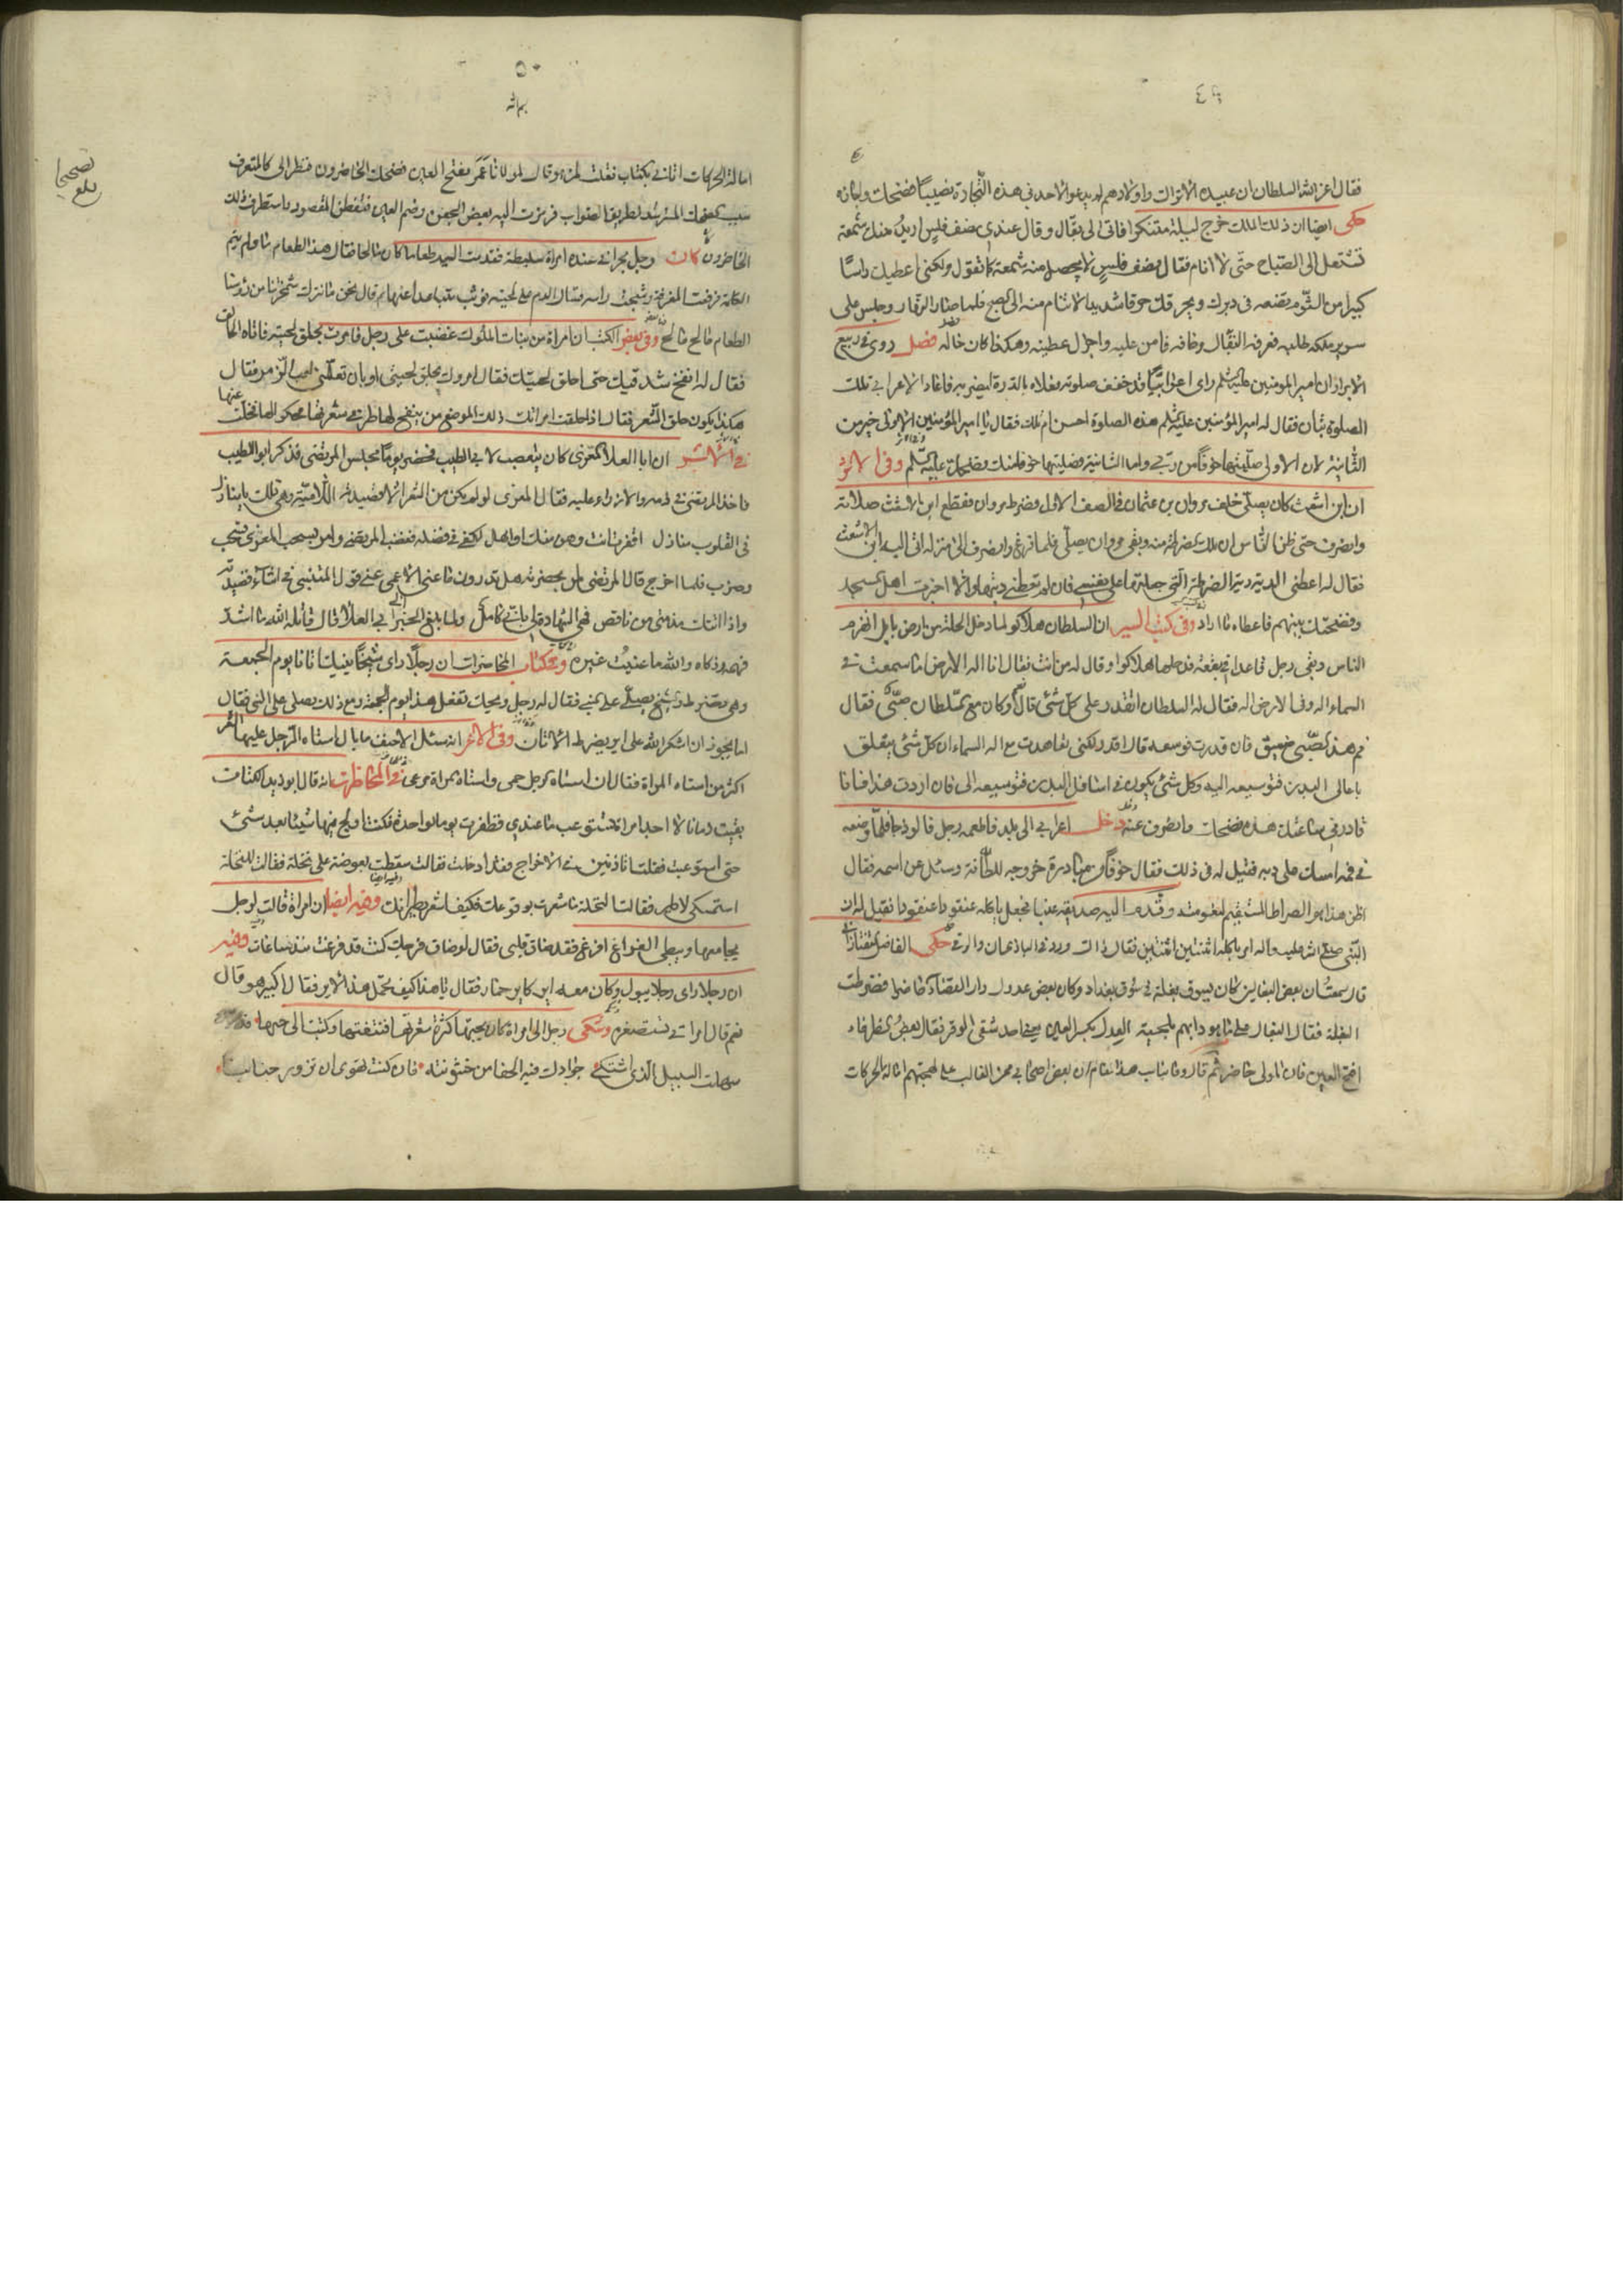 ٤٩
فقال اعز الله السلطان ان عبيده الاتراك واولادهم لم يدعوا لاحد في هذه التجارة نصيبا فضحك واجازه
حكى ايضا ان ذلك الملك خرج ليلة متنكرا فاتى الى بقال وقال عندي نصف فلس اريد منك شمعة
تشتعل الى الصباح حتى لا انام فقال نصف فلس لا يحصل منه شمعة كما تقول ولكني اعطيك راسا
كبيرا من الثوم تضعه في دبرك ويحرقك حرقا شديدا لا تنام منه الى الصبح فلما صار النهار وجلس على
سرير ملكه طلبه فعرفه البقال وخافه فامن عليه واجزل عطيته وهكذا كان حاله فصل روى في ربيع
الابرار ان امير المومنين عليه السلم راى اعرابيا قد خفف صلوته فعلاه بالدرة ليضربه فاعاد الاعرابي تلك
الصلوة بتأن فقال له امير المؤمنين عليه السلم هذه الصلوة احسن ام تلك فقال يا امير المؤمنين الاولى خير من
الثانية لان الاولى صليتها خوفا من ربي واما الثانية فصليتها خوفا منك فضحك عليه السلم وفي الاثر
ان ابن اشعث كان يصلي خلف مروان بن عثمان في الصف الاول فضرط مروان فقطع ابن الاشعث صلاته
وانصرف حتى ظن الناس ان تلك الضرطة منه وبقي مروان يصلي فلما فرغ وانصرف الى منزله اتى اليه ابن الاشعث
فقال له اعطني الدية دية الضرطة التي حملتها على نفسي فان لم تعطني ديتها والا اخبرت اهل المسجد
وفضحتك بينهم فاعطاه ما اراد وفي كتب السير ان السلطان هلاكو لما دخل الحلة من ارض بابل انهزم
الناس وبقي رجل قاعدا في بقعة فدخلها هلاكو وقال له من انت فقال انا اله الارض اما سمعت في
السماء اله وفي الارض اله فقال له السلطان اتقدر على كل شئ قال نعم وكان مع السلطان صبي فقال
فم هذا الصبي ضيق فان قدرت فوسعه قال اقدر لكني تعاهدت مع اله السماء ان كل شئ يتعلق
باعالى البدن فتوسيعه اليه وكل شئ يكون في اسافل البدن فتوسيعه الي فان اردت هذا فانا
قادر في ساعتك هذه فضحك وانصرف عنه دخل اعرابي الى بلد فاطعمه رجل فالوذجا فلما وضعه
في فمه امسك على دبره فقيل له في ذلك فقال خوفا من مبادرة خروجه للطافة وسئل عن اسمه فقال
اظن هذا هو الصراط المستقيم لنعومته وقدم اليه صديقه عنبا فجعل ياكله عنقودا عنقودا فقيل له ان
النبي صلى الله عليه واله امر باكله اثنتين اثنتين فقال ذاك ورد في الباذنجان والرقي حكى الفاضل التفتازاني
قال سمعت ان بعض البغالين كان يسوق بغلة في سوق بغداد وكان بعض عدول دار القضاء حاضرا فضرطت
البغلة فقال البغال على ما هو دابهم بلحية العدل بكسر العين يعني احد شقي الوقر فقال بعض الظرفاء
افتح العين فان المولى حاضر ثم قال وما يناسب هذا المقام ان بعض اصحابي ممن الغالب على لهجتهم امالة الحركات
٥٠
امالة الحركات اتاني بكتاب فقلت لمن هو قال لمولانا عمر بفتح العين فضحك الحاضرون فنظر الي كالمتعرف
سبب ضحكهم المسترشد لطريق الصواب فرمزت اليه بغض الجفن وضم العين فتفطن المقصود واستظرف ذلك
الحاضرون كان رجل بحراني عنده امراة سليطة فقدمت اليه طعاما كان مالحا فقال هذا الطعام مالح فلم يتم
الكلمة فرفعت المغرفة وشجت راسه فسال الدم على لحيته فوثب متباعدا عنها ثم قال نحن ما نترك شخرنا من رؤسنا
الطعام مالح مالح وفي بعض الكتب ان امراة من بنات الملوك غضبت على رجل فامرت بحلق لحيته فاتاه الحالق
فقال له انفخ شدقيك حتى احلق لحيتك فقال امروك بحلق لحيتي او بان تعلمني لعب الزمر فقال
هكذا يكون حلق الشعر فقال اذا حلقت امراتك ذلك الموضع من ينفخ لها طرفي شعرتها فحكوا لها فضحكت عنها
في الاثر ان ابا العلا المعري كان يتعصب لابي الطيب فحضر يوما مجلس المرتضى فذكر ابو الطيب
فاخذ المرتضى في ذمه والازراء عليه فقال المعري لو لم يكن من الشعر الا قصيدته اللامية وهي لك يا منازل
في القلوب منازل اقفرت انت وهن منك اواهل لكفى في فضله فغضب المرتضى وامر بسحب المعري فسحب
وضرب فلما اخرج قال المرتضى لمن بحضرته هل تدرون ما عنى الاعمى عنى قول المتنبي في اثناء قصيدته
واذا اتتك مذمتي من ناقص فهي الشهادة لي باني كامل ولما بلغ الخبر الى ابي العلا قال قاتله الله ما اشد
فهمه وذكاه والله ما عنيت غيره وفي كتاب المحاضرات ان رجلا راى شيخا ينيك اتانا يوم الجمعة
وهي تضرط والشيخ يصلي على النبي فقال له رجل ويحك تفعل هذا يوم الجمعة ومع ذلك تصلي على النبي فقال
اما يجوز ان اشكر الله على اير يضرط الاتان وفي الاغر انه سئل الاحنف ما بال استاه الرجل عليها الشعر
اكثر من استاه المراة فقال ان استاه الرجل حمى واستاه المراة مرعى وفي المحاضرات انه قال ابو زيد
بقيت زمانا لا اجد امراة تستوعب ما عندي فظفرت يوما بواحدة فكنت اولج فيها شيئا بعد شئ
حتى استوعبت فقلت اتاذنين في الاخراج فقد ادخلت فقالت سقطت بعوضة على نخلة فقالت للنخلة
استمسكي لاطير فقالت النخلة ما شعرت بوقوعك فكيف اشعر بطيرانك وفيه ايضا ان امراة قالت لرجل
يجامعها ويبطئ الفراغ افرغ فقد ضاق قلبي فقال لو ضاق فرجك كنت قد فرغت منذ ساعات وفيه
ان رجلا راى رجلا يبول وكان معه اير كاير حمار فقال يا هذا كيف تحمل هذا الاير فقال اكبير هو قال
نعم قال امراتي تستصغره وحكى رجل الى امراة كان يحبها كثرة شعرتها فنتفتها وكتبت الى حبها
سهلت السبيل الذي اشتكى جوادك فيه الحفا من خشونته فان كنت تهوى ان تزور جنابنا